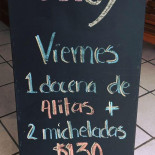 Viernes
1 docena de
Alitas +
2 micheladas
$130